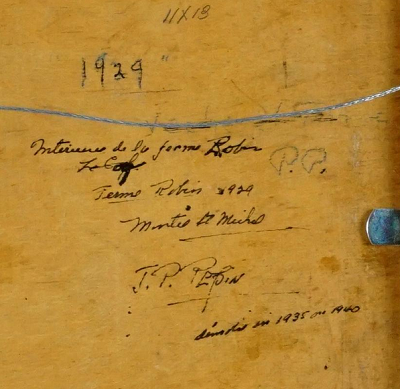 11X13
1929
Interieur de la ferme Robin
Le
Ferme Robin 1929
P.P.
Montée St Michel
J. P. PEPIN
démolie en 1935 ou 1940